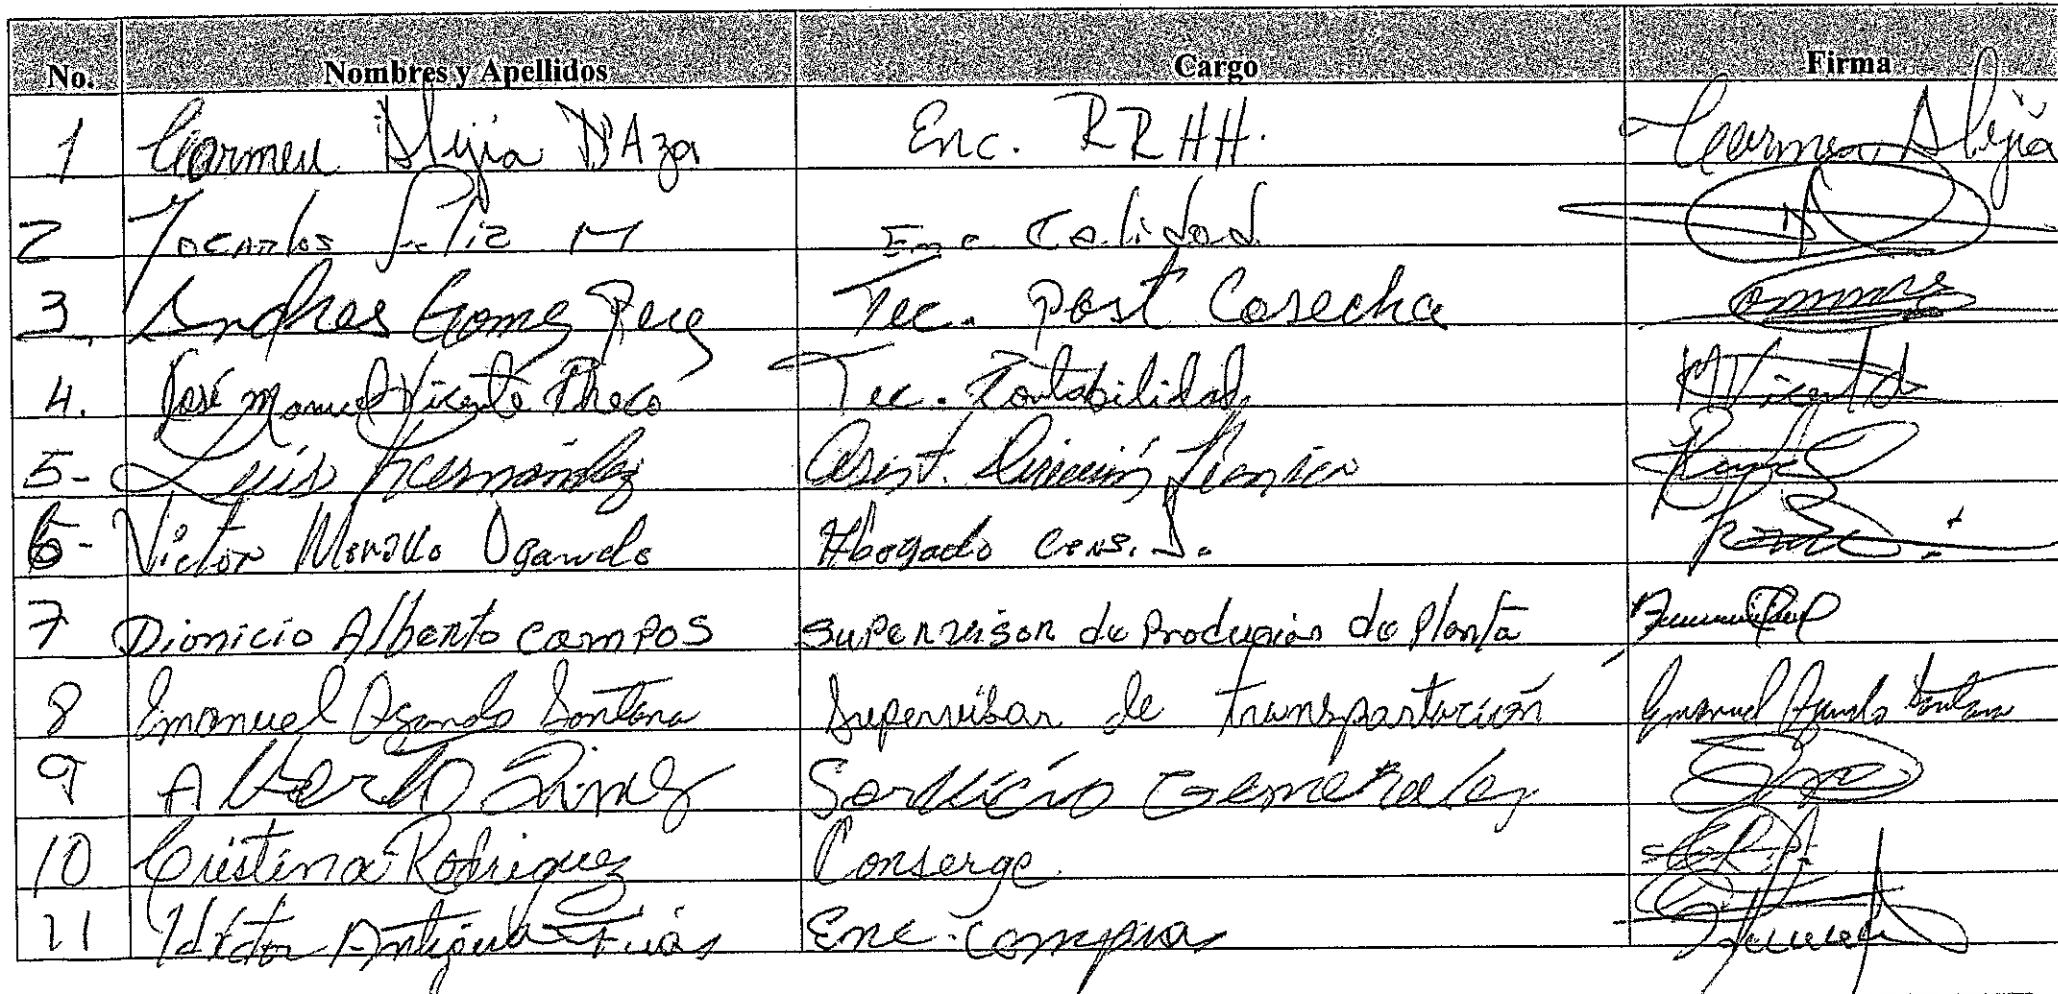 No. Nombres y Apellidos Cargo Firma
1 Carmen Alejia D'Aza Enc. RRHH. Carmen Alejia
2 Jocarlos Feliz M Enc Calidad
3. Andres Gomez Tec. Post Cosecha
4. José Manuel Vicente Tec. Contabilidad
5- Luis Hernández Asist. Dirección Técnica
6- Victor Morillo Ogando Abogado Cons. J.
7 Dionicio Alberto Campos Supervisor de Producion de Planta
8 Emanuel Ogando Santana Supervisor de transportación Emanuel Ogando Santana
9 Alberto Servicio Generales
10 Cristina Rodriguez Conserge
11 Antigua Frias Enc. Compra